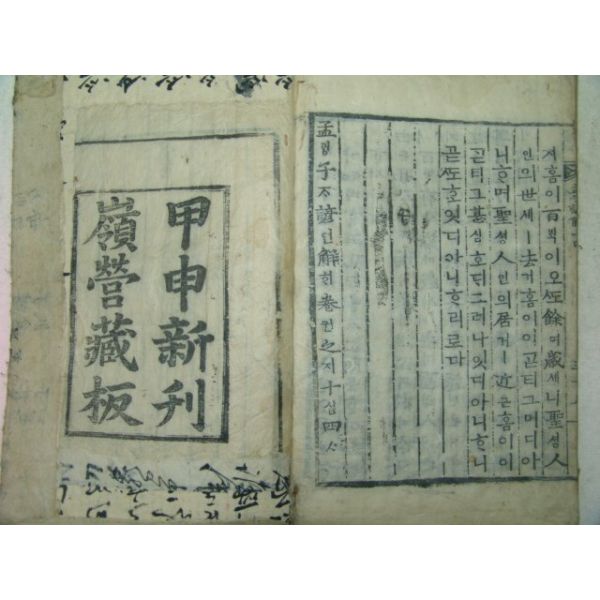 져홈이百ᄇᆡᆨ이오ᄯᅩ餘여歲셰니聖셩人
인의世셰ㅣ去거홈이이곧티그머디아
니ᄒᆞ며聖셩人인의居거ㅣ近근홈이이
곧티그甚심호ᄃᆡ그러나잇디아니ᄒᆞ니
곧ᄯᅩᄒᆞᆫ잇디아니ᄒᆞ리로다
孟ᄆᆡᆼ子ᄌᆞ諺언解ᄒᆡ卷권之지十십四ᄉᆞ
甲申新刊
嶺營藏板